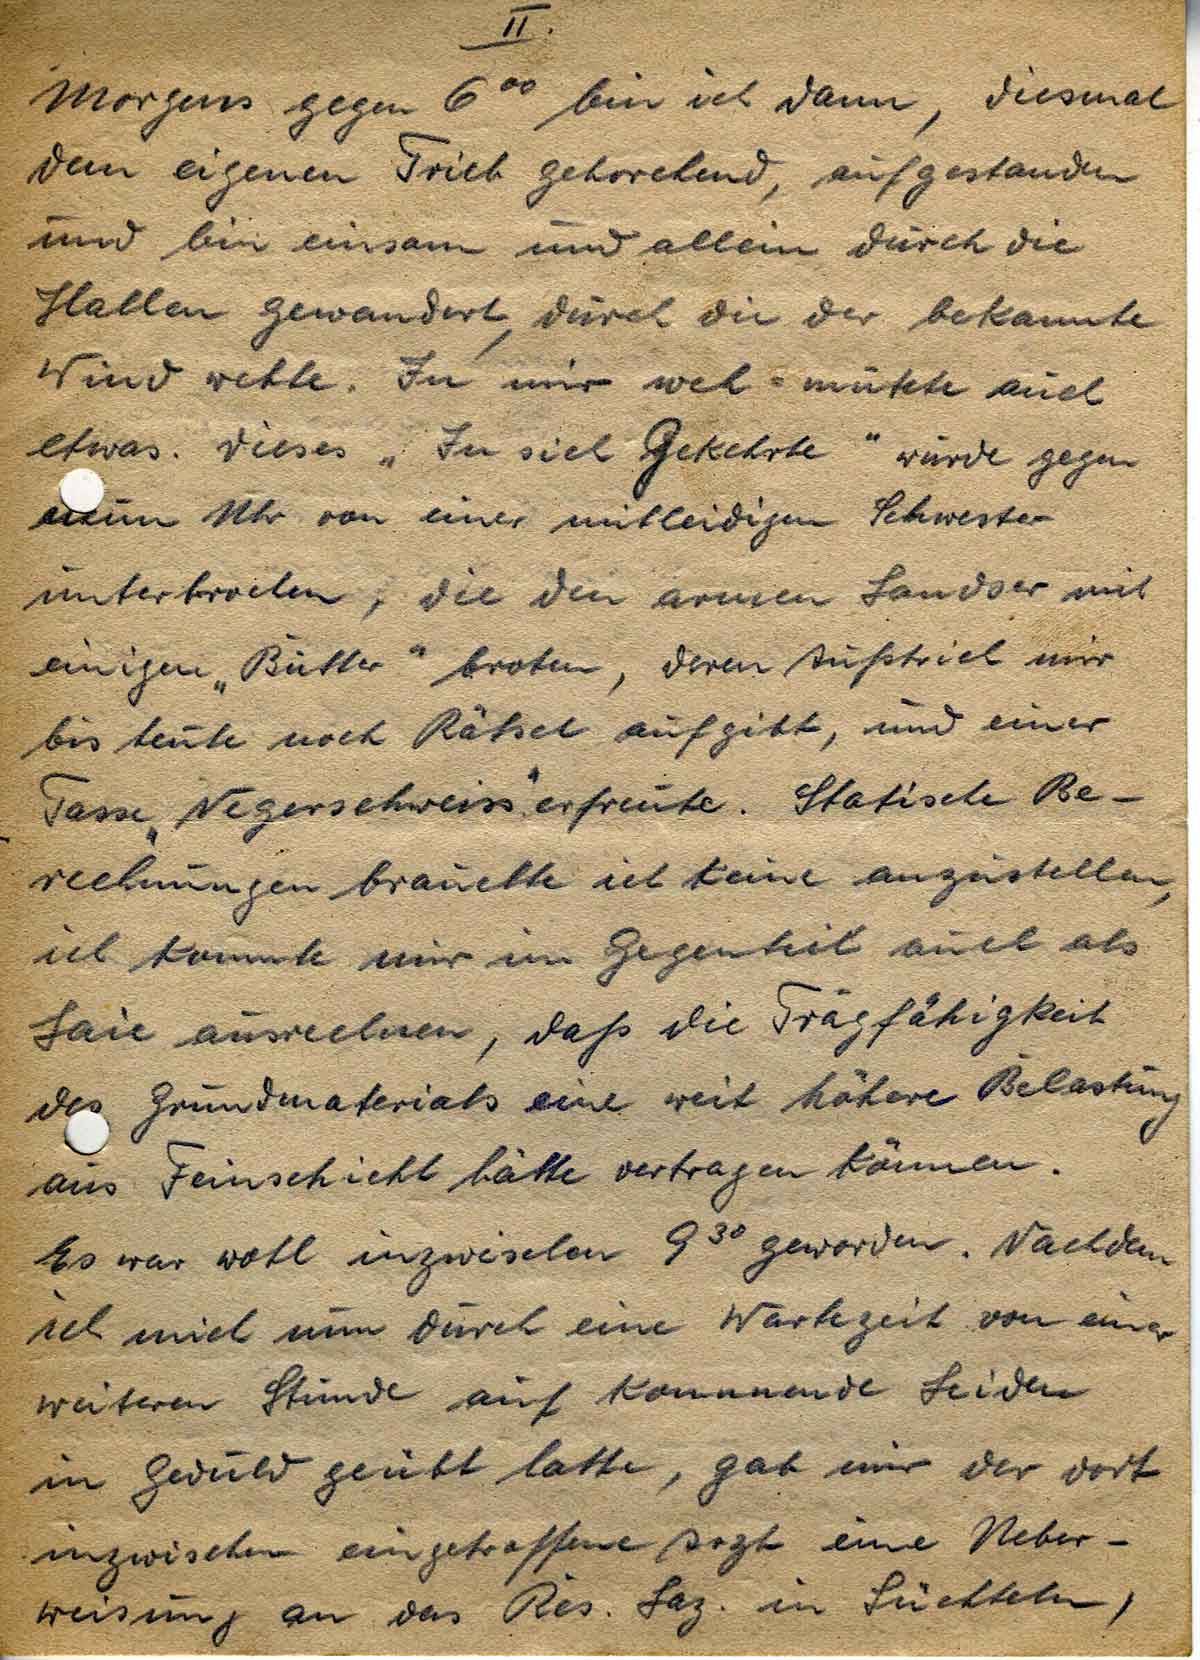 II.
Morgens gegen 6⁰⁰ bin ich dann, diesmal
dem eigenen Trieb gehorchend, aufgestanden
und bin einsam und allein durch die
Hallen gewandert, durch die der bekannte
Wind wehte. In mir weh = mutete auch
etwas. Dieses „In sich Gekehrte" wurde gegen
neun Uhr von einer mitleidigen Schwester
unterbrochen, die den armen Landser mit
einigen „Butter" broten, deren Aufstrich mir
bis heute noch Rätsel aufgibt, und einer
Tasse „Negerschweiss" erfreute. Statische Be-
rechnungen brauchte ich keine anzustellen,
ich konnte mir im Gegenteil auch als
Laie ausrechnen, daß die Tragfähigkeit
des Grundmaterials eine weit höhere Belastung
aus Feinschicht hätte vertragen können.
Es war wohl inzwischen 9³⁰ geworden. Nachdem
ich mich nun durch eine Wartezeit von einer
weiteren Stunde auf kommende Leiden
in Geduld geübt hatte, gab mir der dort
inzwischen eingetroffene Arzt eine Ueber-
weisung an das Res. Laz. in Süchteln,